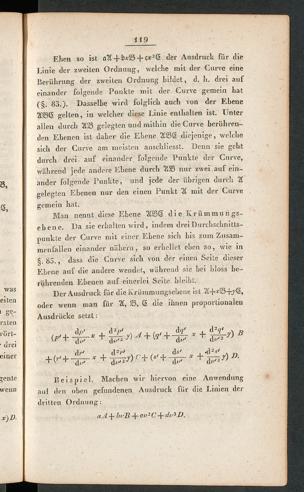 119
Eben so ist a𝔄+bv𝔅+cv²ℭ der Ausdruck für die
Linie der zweiten Ordnung, welche mit der Curve eine
Berührung der zweiten Ordnung bildet, d. h. drei auf
einander folgende Punkte mit der Curve gemein hat
(§. 83.). Dasselbe wird folglich auch von der Ebene
𝔄𝔅ℭ gelten, in welcher diese Linie enthalten ist. Unter
allen durch 𝔄𝔅 gelegten und mithin die Curve berühren-
den Ebenen ist daher die Ebene 𝔄𝔅ℭ diejenige, welche
sich der Curve am meisten anschliesst. Denn sie geht
durch drei auf einander folgende Punkte der Curve,
während jede andere Ebene durch 𝔄𝔅 nur zwei auf ein-
ander folgende Punkte, und jede der übrigen durch 𝔄
gelegten Ebenen nur den einen Punkt 𝔄 mit der Curve
gemein hat.
Man nennt diese Ebene 𝔄𝔅ℭ die Krümmungs-
ebene. Da sie erhalten wird, indem drei Durchschnitts-
punkte der Curve mit einer Ebene sich bis zum Zusam-
menfallen einander nähern, so erhellet eben so, wie in
§. 85., dass die Curve sich von der einen Seite dieser
Ebene auf die andere wendet, während sie bei bloss be-
rührenden Ebenen auf einerlei Seite bleibt.
Der Ausdruck für die Krümmungsebene ist 𝔄+x𝔅+yℭ,
oder wenn man für 𝔄, 𝔅, ℭ die ihnen proportionalen
Ausdrücke setzt:
(p′ + dp′/dv x + d²p′/dv² y) A + (q′ + dq′/dv x + d²q′/dv² y) B
+ (r′ + dr′/dv x + d²r′/dv² y) C + (s′ + ds′/dv x + d²s′/dv² y) D.
Beispiel. Machen wir hiervon eine Anwendung
auf den oben gefundenen Ausdruck für die Linien der
dritten Ordnung:
aA + bvB + cv²C + dv³D.
𝔅,
ℭ,
was
eiten
rsten
drei
einer
gente
wenn
x) D.